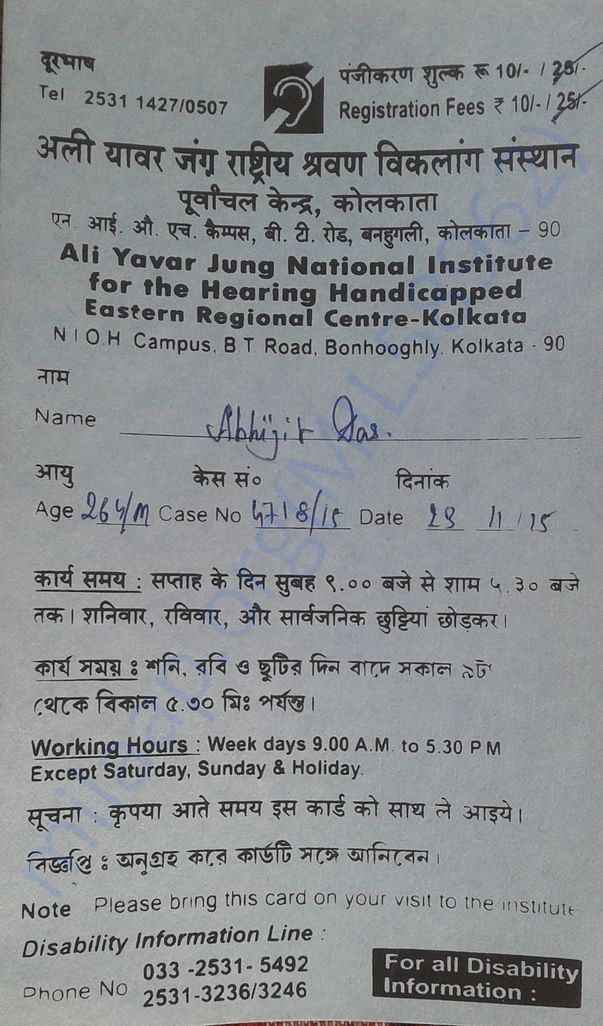 दूरभाष
Tel 2531 1427/0507
पंजीकरण शुल्क रू 10/- / 25/-
Registration Fees ₹ 10/- / 25/-
अली यावर जंग़ राष्ट्रीय श्रवण विकलांग संस्थान
पूर्वांचल केन्द्र, कोलकाता
एन. आई. औ. एच. कैम्पस, बी. टी. रोड, बनहुगली, कोलकाता – 90
Ali Yavar Jung National Institute
for the Hearing Handicapped
Eastern Regional Centre-Kolkata
N I O.H Campus, B T Road, Bonhooghly. Kolkata - 90
नाम
Name Abhijit Das.
आयु केस सं० दिनांक
Age 26y/M Case No 4718/15 Date 11/15
कार्य समय : सप्ताह के दिन सुबह ९.०० बजे से शाम ५.३० बजे
तक। शनिवार, रविवार, और सार्वजनिक छुट्टियां छोड़कर।
কার্য সময় ঃ শনি, রবি ও ছুটির দিন বাদে সকাল ৯টা
থেকে বিকাল ৫.৩০ মিঃ পর্যন্ত।
Working Hours : Week days 9.00 A.M. to 5.30 P M
Except Saturday, Sunday & Holiday.
सूचना : कृपया आते समय इस कार्ड को साथ ले आइये।
ঃ অনুগ্রহ করে কার্ডটি সঙ্গে আনিবেন।
Note Please bring this card on your visit to the institute
Disability Information Line :
Phone No 033 -2531- 5492
2531-3236/3246
For all Disability
Information :